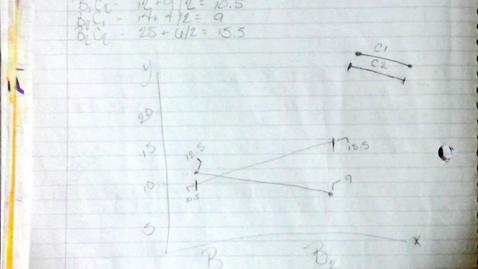 B₁C₂ - 12 + 9 / 2 = 10.5
B₂C₁ - 14 + 4 / 2 = 9
B₂C₂ - 25 + 6 / 2 = 15.5
C1
C2
y
20
15
12.5
15.5
10
10.5
9
5
x
B
B₂